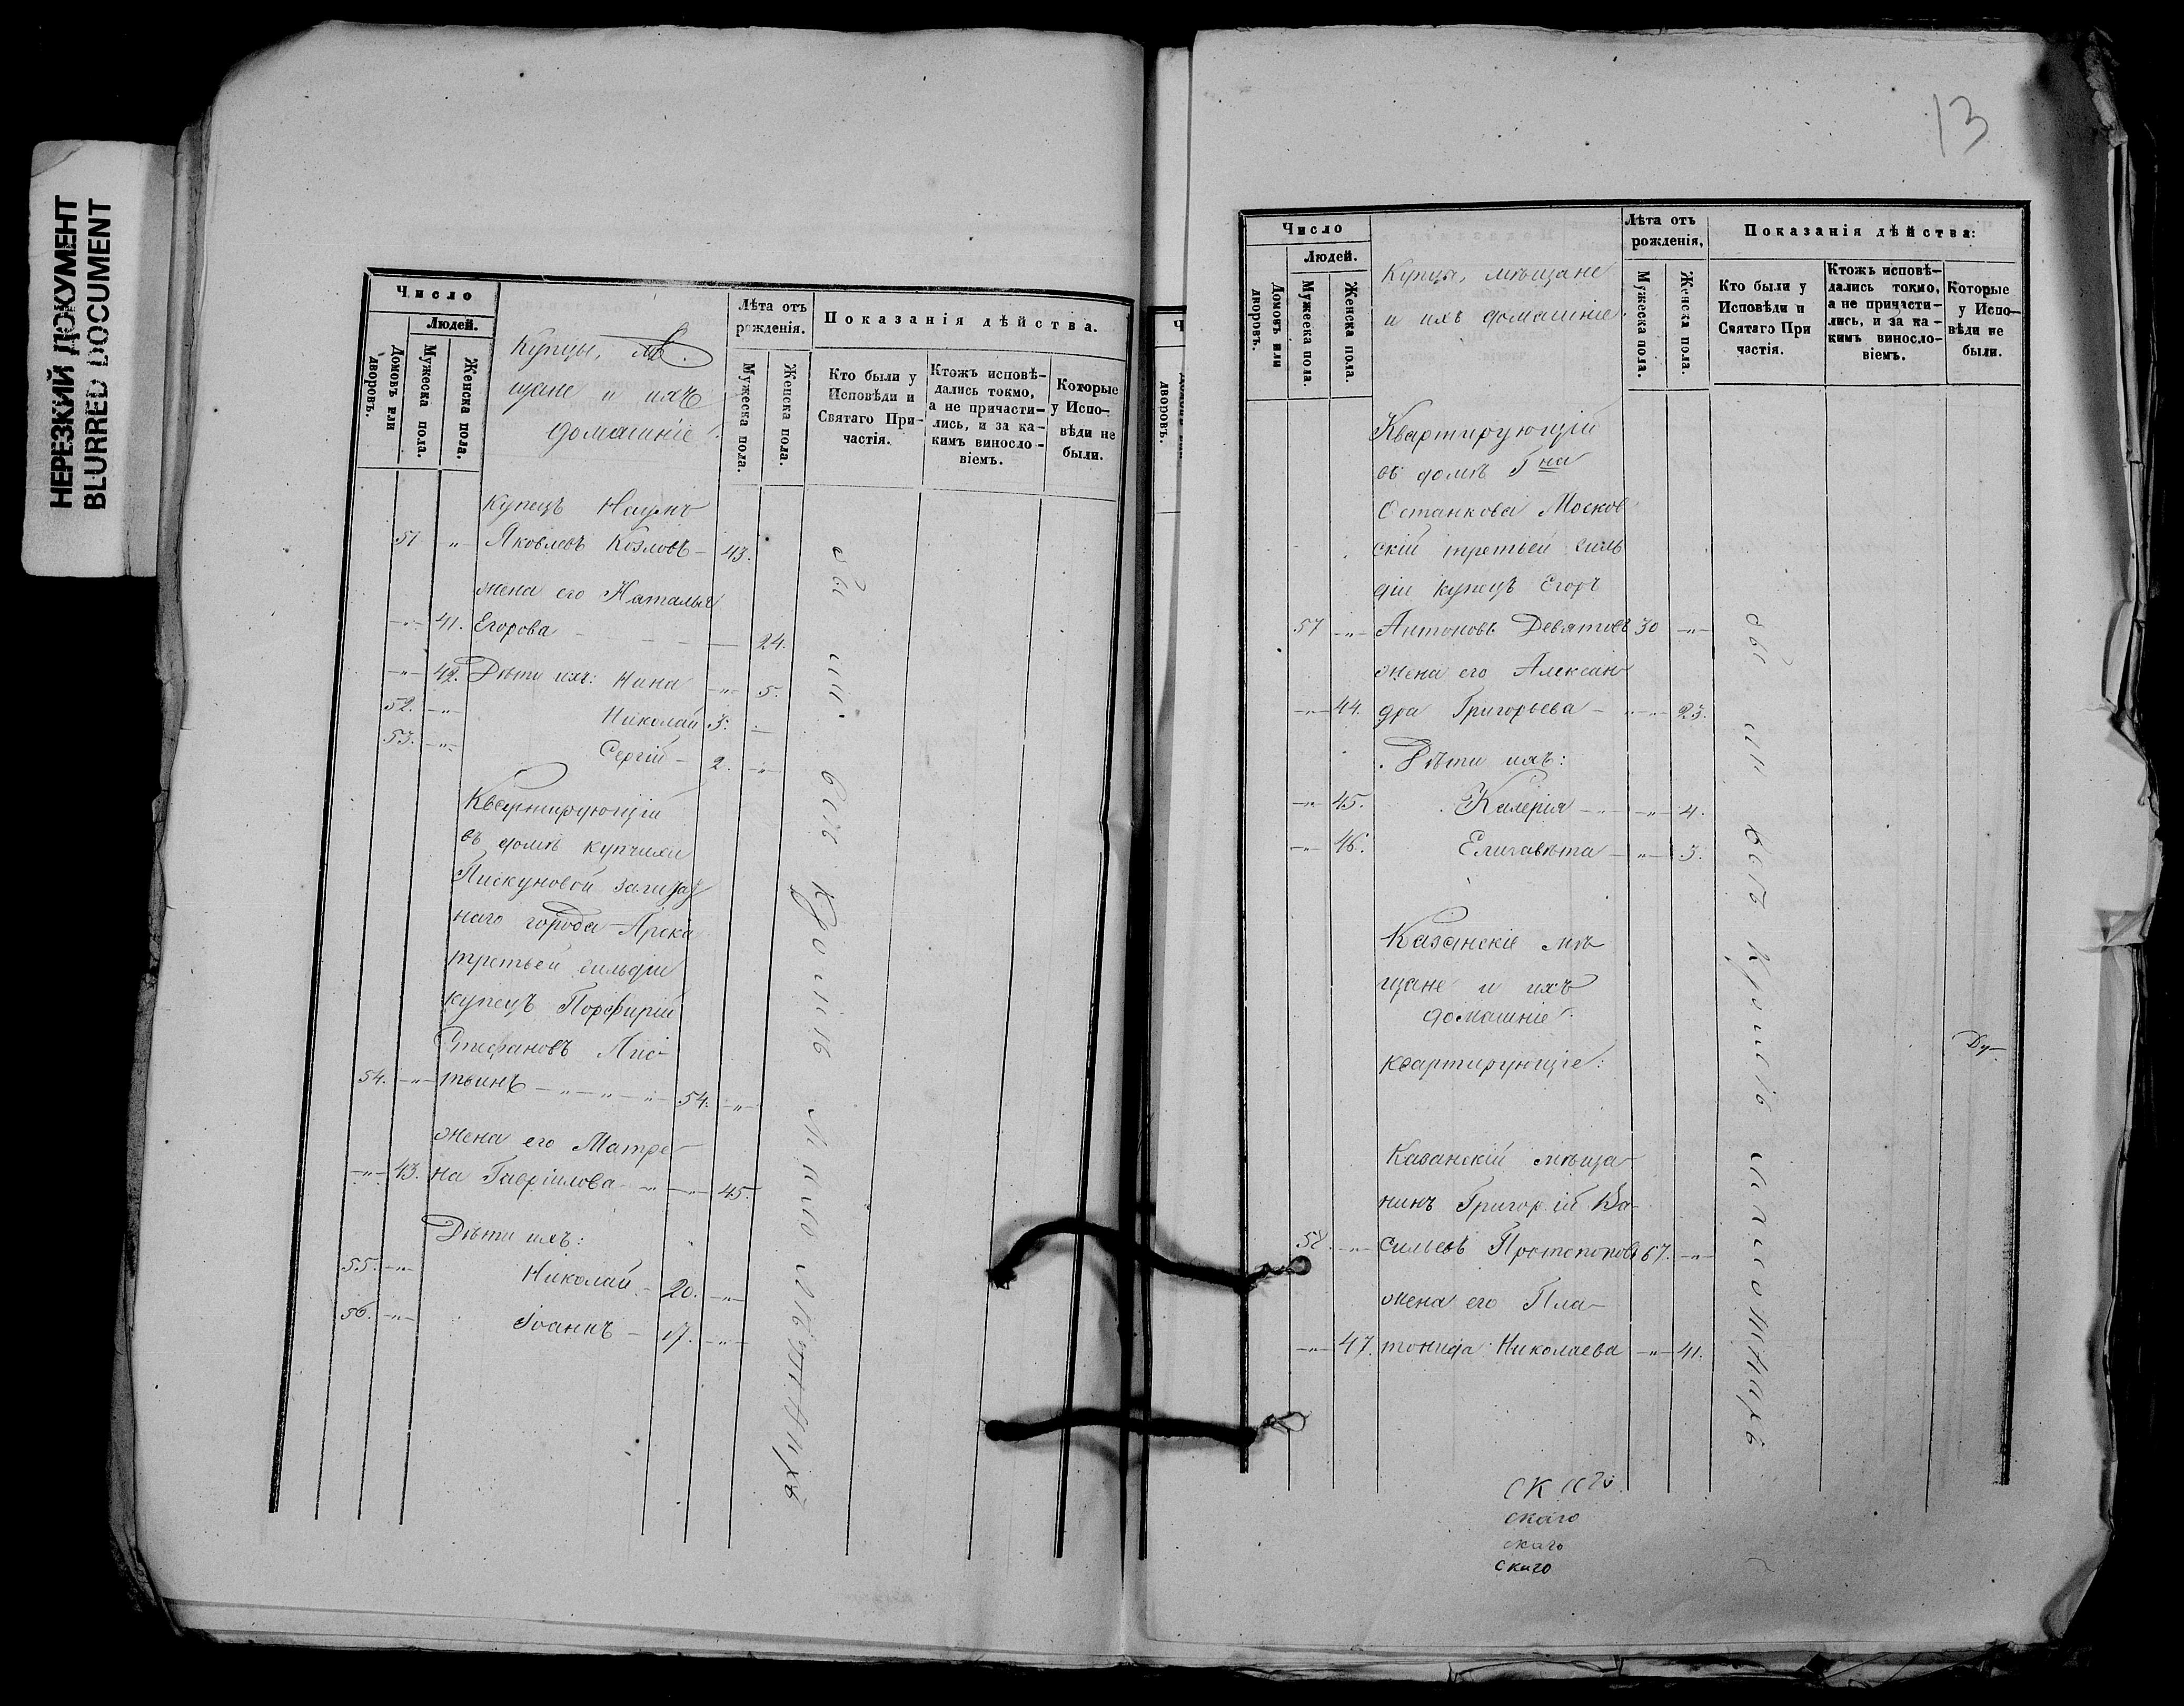 НЕРЕЗКИЙ ДОКУМЕНТ
BLURRED DOCUMENT
Число
Людей.
Домовъ или дворовъ.
Мужеска пола.
Женска пола.
Купцы, мѣ-
щане и ихъ
домашніе.
Лѣта отъ
рожденія.
Мужеска пола.
Женска пола.
Показанія дѣйства.
Кто были у
Исповѣди и
Святаго При-
частія.
Ктожъ исповѣ-
дались токмо,
а не причасти-
лись, и за ка-
кимъ винос­ло-
віемъ.
Которые
у Испо-
вѣди не
были.
Купецъ Наумъ
51 -"- Яковлевъ Козловъ - 43.
жена его Наталья
-"- 41. Егорова - - - - 24.
-"- 42. Дѣти ихъ: Нина -"- 5.
52. -"- Николай 3. -
53. -"- Сергій - 2. -"-
Квартирующій
въ домѣ купчихи
Пискуновой заштат
наго города Арска
третьей гильдіи
купецъ Порфирій
Стефановъ
54. -"- тьинъ -"-"-"- 54. -"-
жена его Матре-
-"- 43. на Гавріилова -"- 45.
Дѣти ихъ:
55. -"- Николай - 20. -"-
56. -"- Іоаннъ - 17. -"-
всѣ кромѣ малолѣтныхъ
13
Число
Людей.
Домовъ или дворовъ.
Мужеска пола.
Женска пола.
Купцы, мѣщане
и ихъ домашніе.
Лѣта отъ
рожденія,
Мужеска пола.
Женска пола.
Показанія дѣйства:
Кто были у
Исповѣди и
Святаго При
частія.
Ктожъ исповѣ-
дались токмо,
а не причасти-
лись, и за ка-
кимъ винос­ло-
віемъ.
Которые
у Испо-
вѣди не
были.
Квартирующій
въ домѣ Гна
Останкова Москов
скій третьей гиль
діи купецъ Егоръ
57 -"- Антоновъ Девятовъ 30 -"-
жена его Алексан
-"- 44. дра Григорьева - -"- 23.
Дѣти ихъ:
-"- 45. Калерія -"- -"- 4.
-"- 46. Елизавѣта - -"- 3.
Казанскіе мѣ
щане и ихъ
домашніе.
квартирующіе:
Казанскій мѣща
нинъ Григорій Ва-
58. -"- сильевъ Протопоповъ 67. -"-
жена его Пла-
-"- 47. тонида Николаева -"- 41.
всѣ кромѣ
скаго
скаго
скаго
скаго